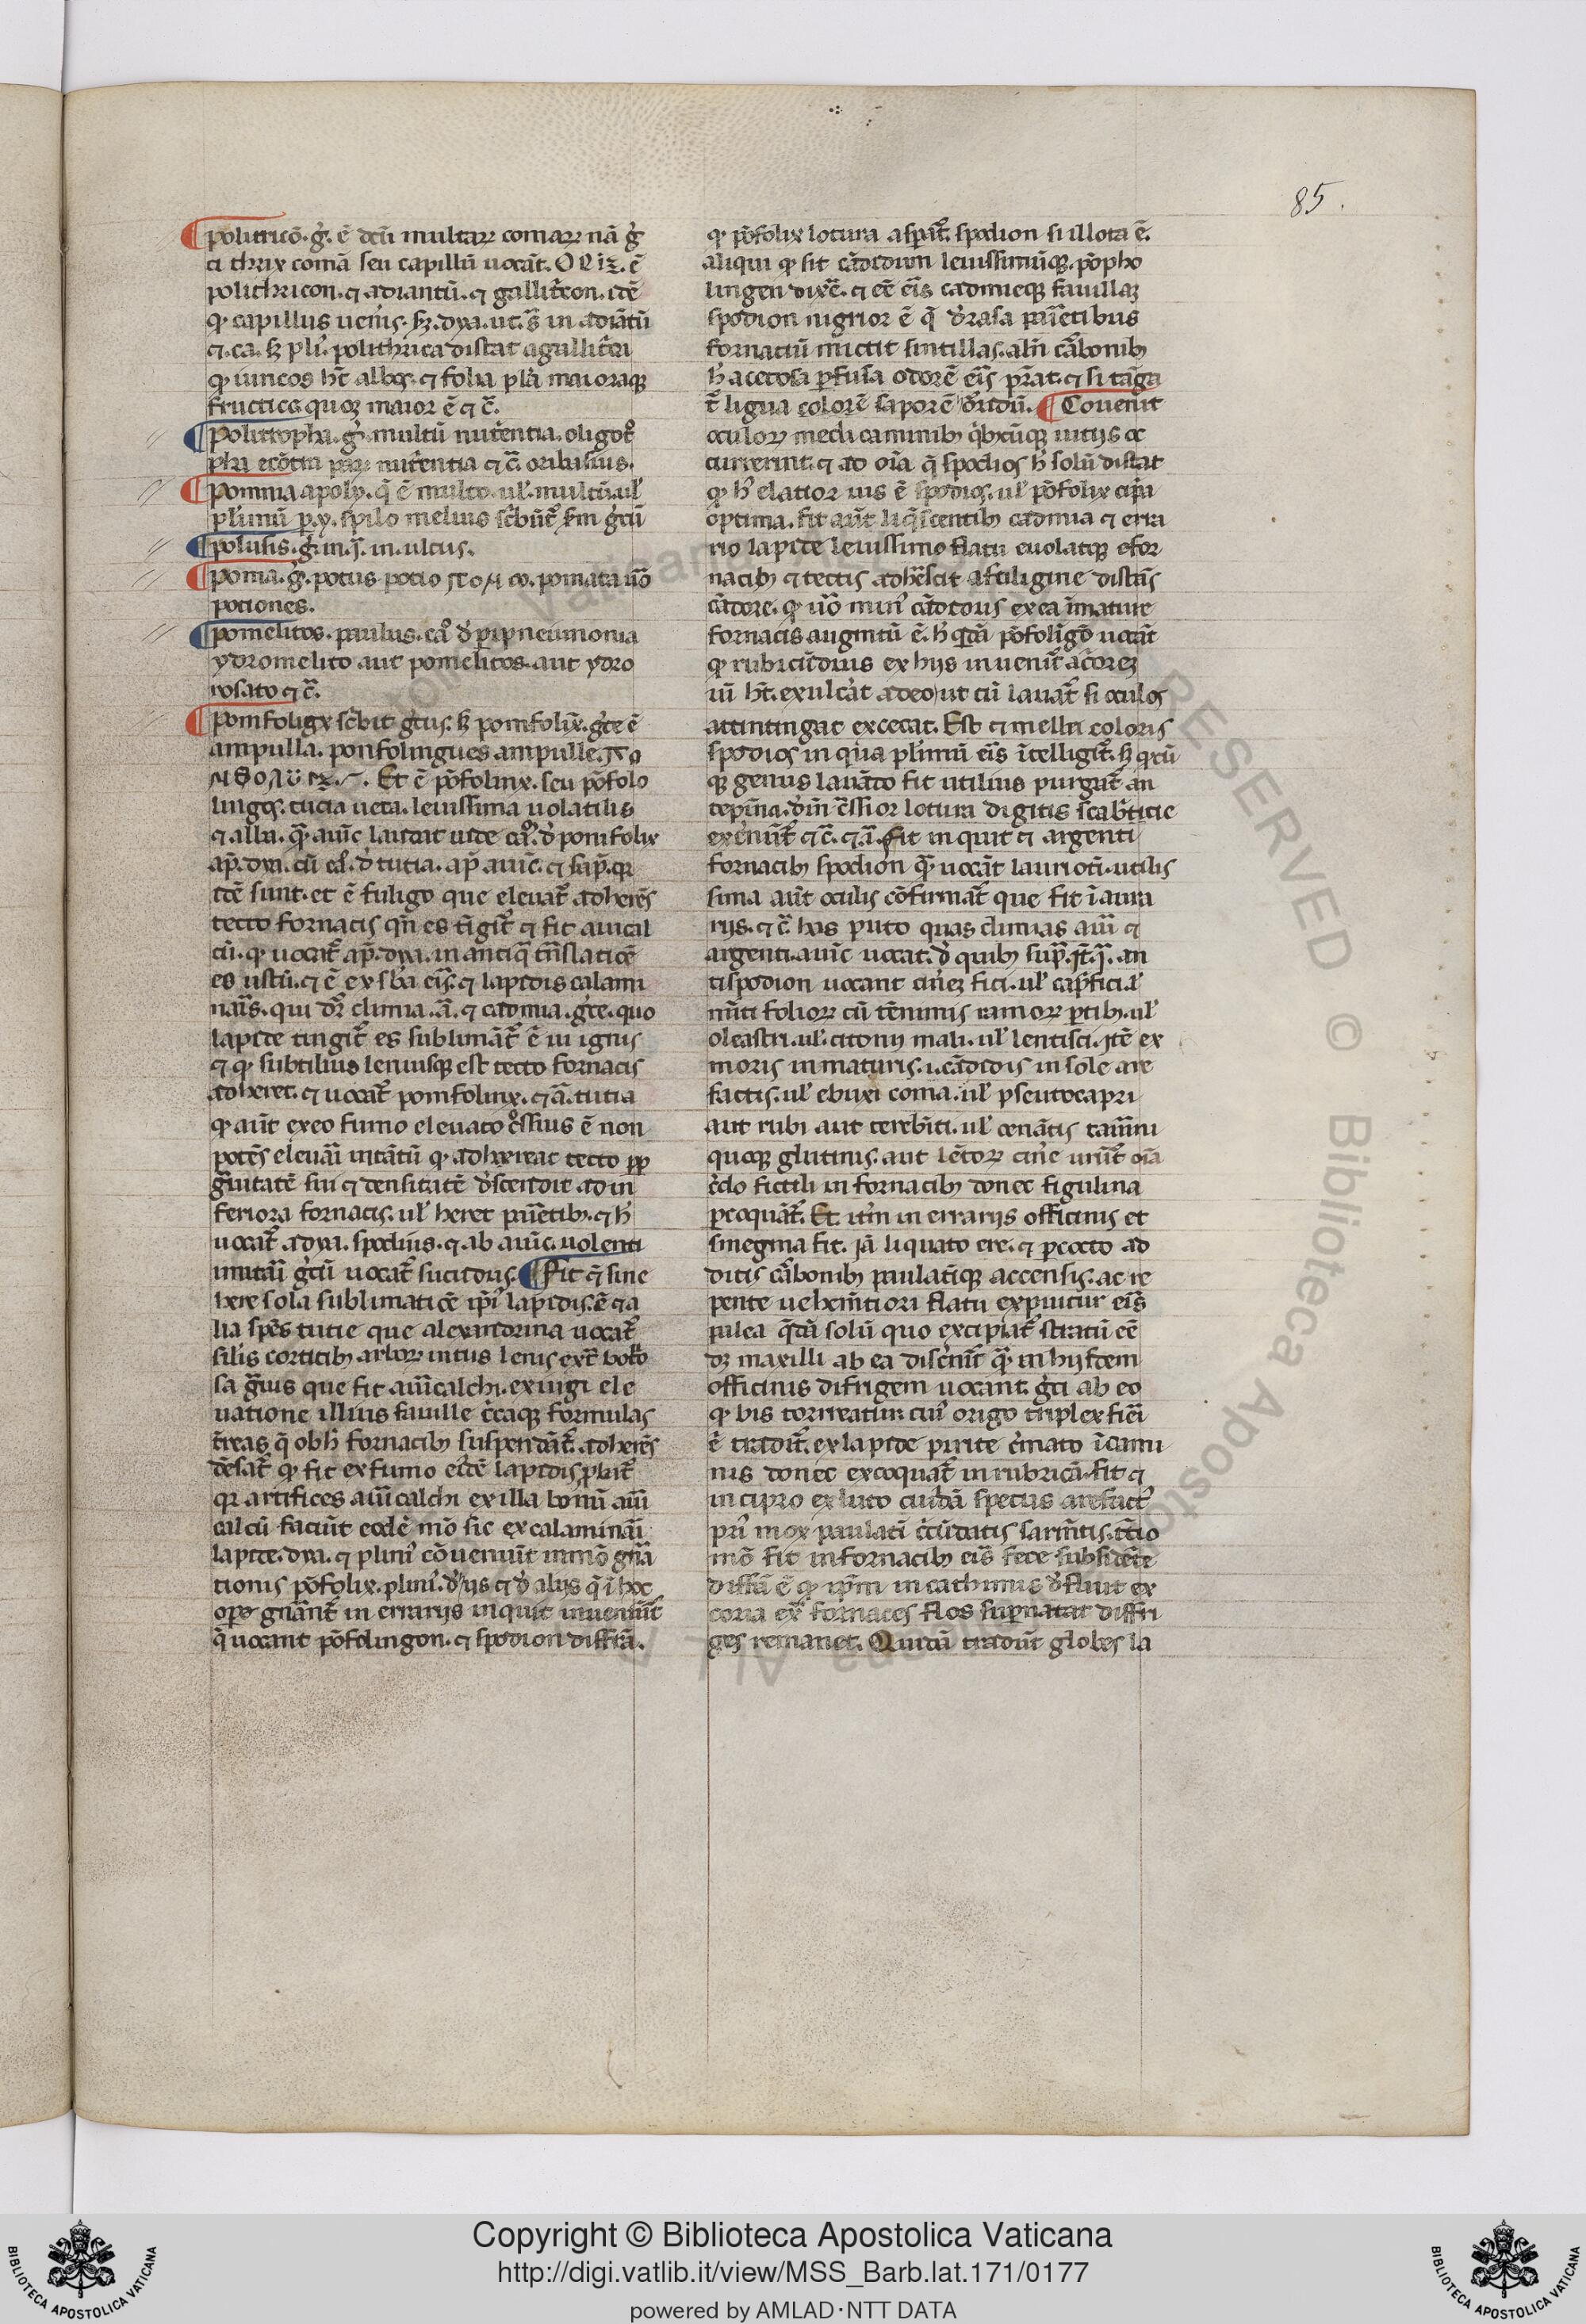 85.
politricō. g̍. ē dcū multaꝝ comaꝝ nā g̍
ci thrix comā seu capillū uocāt. ē
polithricon. ⁊ adiantū. ⁊ gallit̄con. idē
ꝙ capillus uen̄is. ẜm. dya. ut. s̄ in adiātū
⁊. ca. ẜ plī. polithrica distat a gallit̄ci
ꝙ iuncos hēt albos. ⁊ folia pl̄a maioraqꝫ
fructicis quoꝫ maior ē ⁊ c̄.
Politropha. g̍. multū nut̄entia. oligot̄o
phi ecōtia nut̄entia ⁊ c̄. oribasius.
Pomma apoly. q̄ ē multo. ul̄. multū. ul̄
pl̄imū p. y. spilo melius sc̄būt᷑ ẜm gc̄ū
polusis. g̍. in. in. ulcus.
poma. g̍. potus potio pomata ūo
potiones.
pomelitos. paulus. ca̍. d̍ pipneumonia
ydromelito aut pomelitos. aut ydro
rosato ⁊ c̄.
Pomfoligx sc̄bit gc̄us. ẜ pomfolix̄. gc̄e ē
ampulla. ponfolingues ampulle.
Et ē pōfolinx. seu pōfolo
lingos. tucia ueta. leuissima uolatilis
⁊ alba. q̄ auic̄ laudat uide ca̍. d̍ pomfolix
ap̄. dya. cū ca̍. d̍ tutia. ap̄ auic̄. ⁊ sap̄. qꝛ
idē sunt. et ē fuligo que eleuat᷑ adherēs
tecto fornacis qn̄ es tīgit᷑ ⁊ fit auical
cū. ꝙ uocat᷑ ap̄. dya. in antiq̄ trāslatiōe
es ustū. ⁊ ē ex sb̄a ei̍s. ⁊ lapidis calami
nar̄is. qui dr̄ climia. ā. ⁊ cadmia. gc̄e. quo
lapide tingit᷑ es sublimāt᷑ ē ui ignis
⁊ ꝙ subtilius leuiusqꝫ est tecto fornacis
adheret. ⁊ uocat᷑ pomfolinx. ⁊ ā. tutia
ꝙ aūt ex eo fumo eleuato gͦssius ē non
potēs eleuar̄i intātū ꝙ adhereat tecto ꝓp
gͣuitatē sui ⁊ densitatē d̍scendit ad in
feriora fornacis. ul̄ heret pariētibꝫ. ⁊ h̍
uocat᷑ a dya. spodius. ⁊ ab auic̄. uolenti
imitar̄i gc̄ū uocat᷑ sucidus. Fit ⁊ sine
here sola sublimatiōe ip̄ī lapidis. ē ⁊ a
lia spēs tutie que alexandrina uocat᷑
sil̄is corticibꝫ arboꝝ intus lenis ext̄ botro
sa gͣuis que fit auricalchi. ex uigi ele
uatione illius fauille c̍caqꝫ formulas
t̄reas q̄ ob h̍ fornacibꝫ suspendūt᷑. adherēs
dēsat᷑ ꝙ fit ex fumo eidē lapidis.
qꝛ artifices aur̄icalchi ex illa bonū aur̄i
calcū faciūt eodē mō sic ex calaminar̄i
lapide. dya. ⁊ plini̍ cōueniūt in mō gn̄a
tionis pōfolix. plini̍. d̍ iis ⁊ d̍ aliis q̄ ī hoc
opeͬ gn̄ant᷑ in errariis inquit inueniūt᷑
q̄ uocant pōfolingon. ⁊ spodion diffr̄ā.
ꝙ pōfolix lotura aspāt᷑. spodion si illota ē.
aliqui ꝙ sit cādidum leuissimūqꝫ. pōpho
lingen dixr̄e. ⁊ eē ei̍s cadmieqꝫ fauillaꝫ
spodion nigrior ē q̄ d̍rasa pariētibus
fornaciū mictit sintillas. aln̄ cārbonibꝫ
h̍ acetosa pfusa odorē eris prestat. ⁊ si tāga
t᷑ ligua colorē saporē d̍ridū. Cōuenit
oculoꝝ medicaminibꝫ qb̄cūqꝫ uitiis oc
currerint. ⁊ ad oīa q̄ spodios h̍ solū distat
ꝙ h̍ elatior uis ē spodios. ul̄ pōfolix cip̄a
optima. fit aūt liq̄scentibꝫ cadmia ⁊ erra
rio lapide leuissimo flatu euolatqꝫ efor
nacibꝫ ⁊ tectis adhēscit a fuligine distās
cādore. ꝙ ūo min̍ cādidus ex ea īmature
fornacis augmtū ē. h̍ qdā pōfoligō uocāt
ꝙ rubicūdius ex hiis inuenit᷑ ac̍oreꝫ
iū ht̄. exulcāt adeo ut cū lauat᷑ si oculos
attintingat excecat. Est ⁊ mellei coloris
spodios in qua pl̄imū eris ītelligit᷑. ẜ qdcū
qꝫ genus lauādo fit utilius purgat᷑ an
te pēna. d̍in̄ c̍ssior lotura digitis scab̄tie
exim̄t᷑ ⁊ c̄. ⁊ ī. fit inquit ⁊ argenti
fornacibꝫ spodion q̄ uocāt lauriotī. utilis
sima aūt oculis cōfirmat᷑ que fit ī aura
riis. ⁊ c̄. has puto quas climias auri ⁊
argenti. auic̄ uocat. d̍ quibꝫ supͣ. an
tispodion uocant cin̄eꝫ fici. ul̄ cap̄fici. l̄
mirti folioꝝ cū tēnimis ramoꝝ ptibꝫ. ul̄
oleastri. ul̄. citonii mali. ul̄ lentisci. jtē ex
moris in maturis. i. cādidis in sole are
factis. ul̄ ebuxi coma. ul̄ pseutocapri
aut rubi aut terebīti. ul̄ oenātis taurini
quoqꝫ glutinis. aut lētoꝝ cin̄e urūt᷑ oīa
c̍do fictili in fornacibꝫ donec figulina
pcoquāt᷑. Et itm̄ in errariis officinis et
smegma fit. jā liquato ere. ⁊ pcocto ad
ditis cārbonibꝫ paulatīqꝫ accensis. ac re
pente uehem̄tiori flatu expuitur eris
palea q̄dā solū quo excipiat᷑ stratū eē
dꝫ maxilli ab ea disc̍nit᷑ q̄ in hiisdem
officinis difrigem uocant. gc̄i ab eo
ꝙ bis torreatur. cui̍ origo triplex fieri
ē tradit᷑. ex lapide pirite c̍mato ī cami
nis donec excoquat᷑ in rubricā. fit ⁊
in cipro ex luto cui̍dā specus arefact᷑
pri̍ mox paulatī c̍cūdatis sarm̄tis. tc̄io
mō fit in fornacibꝫ eris fece subsidēte
diffr̄ā ē ꝙ ip̄m in cathinus d̍fluit ex
coria exͣ fornaces flos supnatat diffri
ges remanet. Quidā tradūt globos la
Copyright © Biblioteca Apostolica Vaticana
http://digi.vatlib.it/view/MSS_Barb.lat.171/0177
powered by AMLAD·NTT DATA